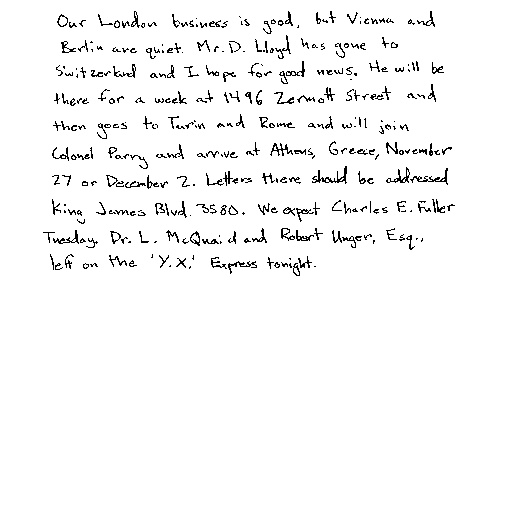 Our London business is good, but Vienna and
Berlin are quiet. Mr. D. Lloyd has gone to
Switzerland and I hope for good news. He will be
there for a week at 1496 Zermott Street and
then goes to Turin and Rome and will join
Colonel Parry and arrive at Athens, Greece, November
27 or December 2. Letters there should be addressed
King James Blvd. 3580. We expect Charles E. Fuller
Tuesday. Dr. L. McQuaid and Robert Unger, Esq.,
left on the 'Y.X.' Express tonight.